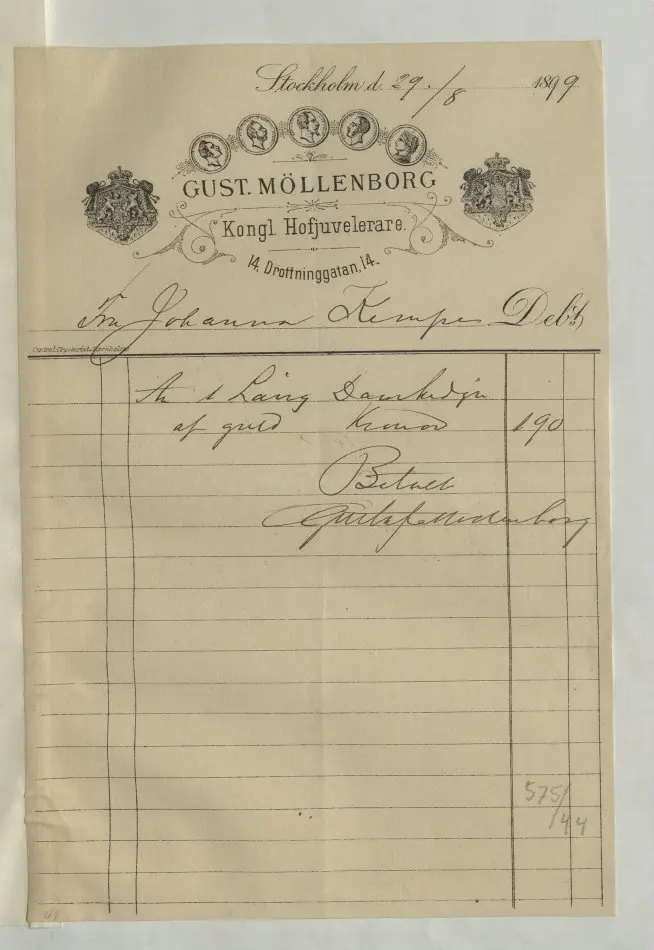 Stockholm d. 29./8 1899
GUST. MÖLLENBORG
Kongl. Hofjuvelerare.
14, Drottninggatan, 14.
Fru Johanna Kempe Debt,
Central-Tryckeriet, Stockholm
An 1 Lång Damkedja
af guld Kronor 190
Betalt
Gustaf Möllenborg
575/44